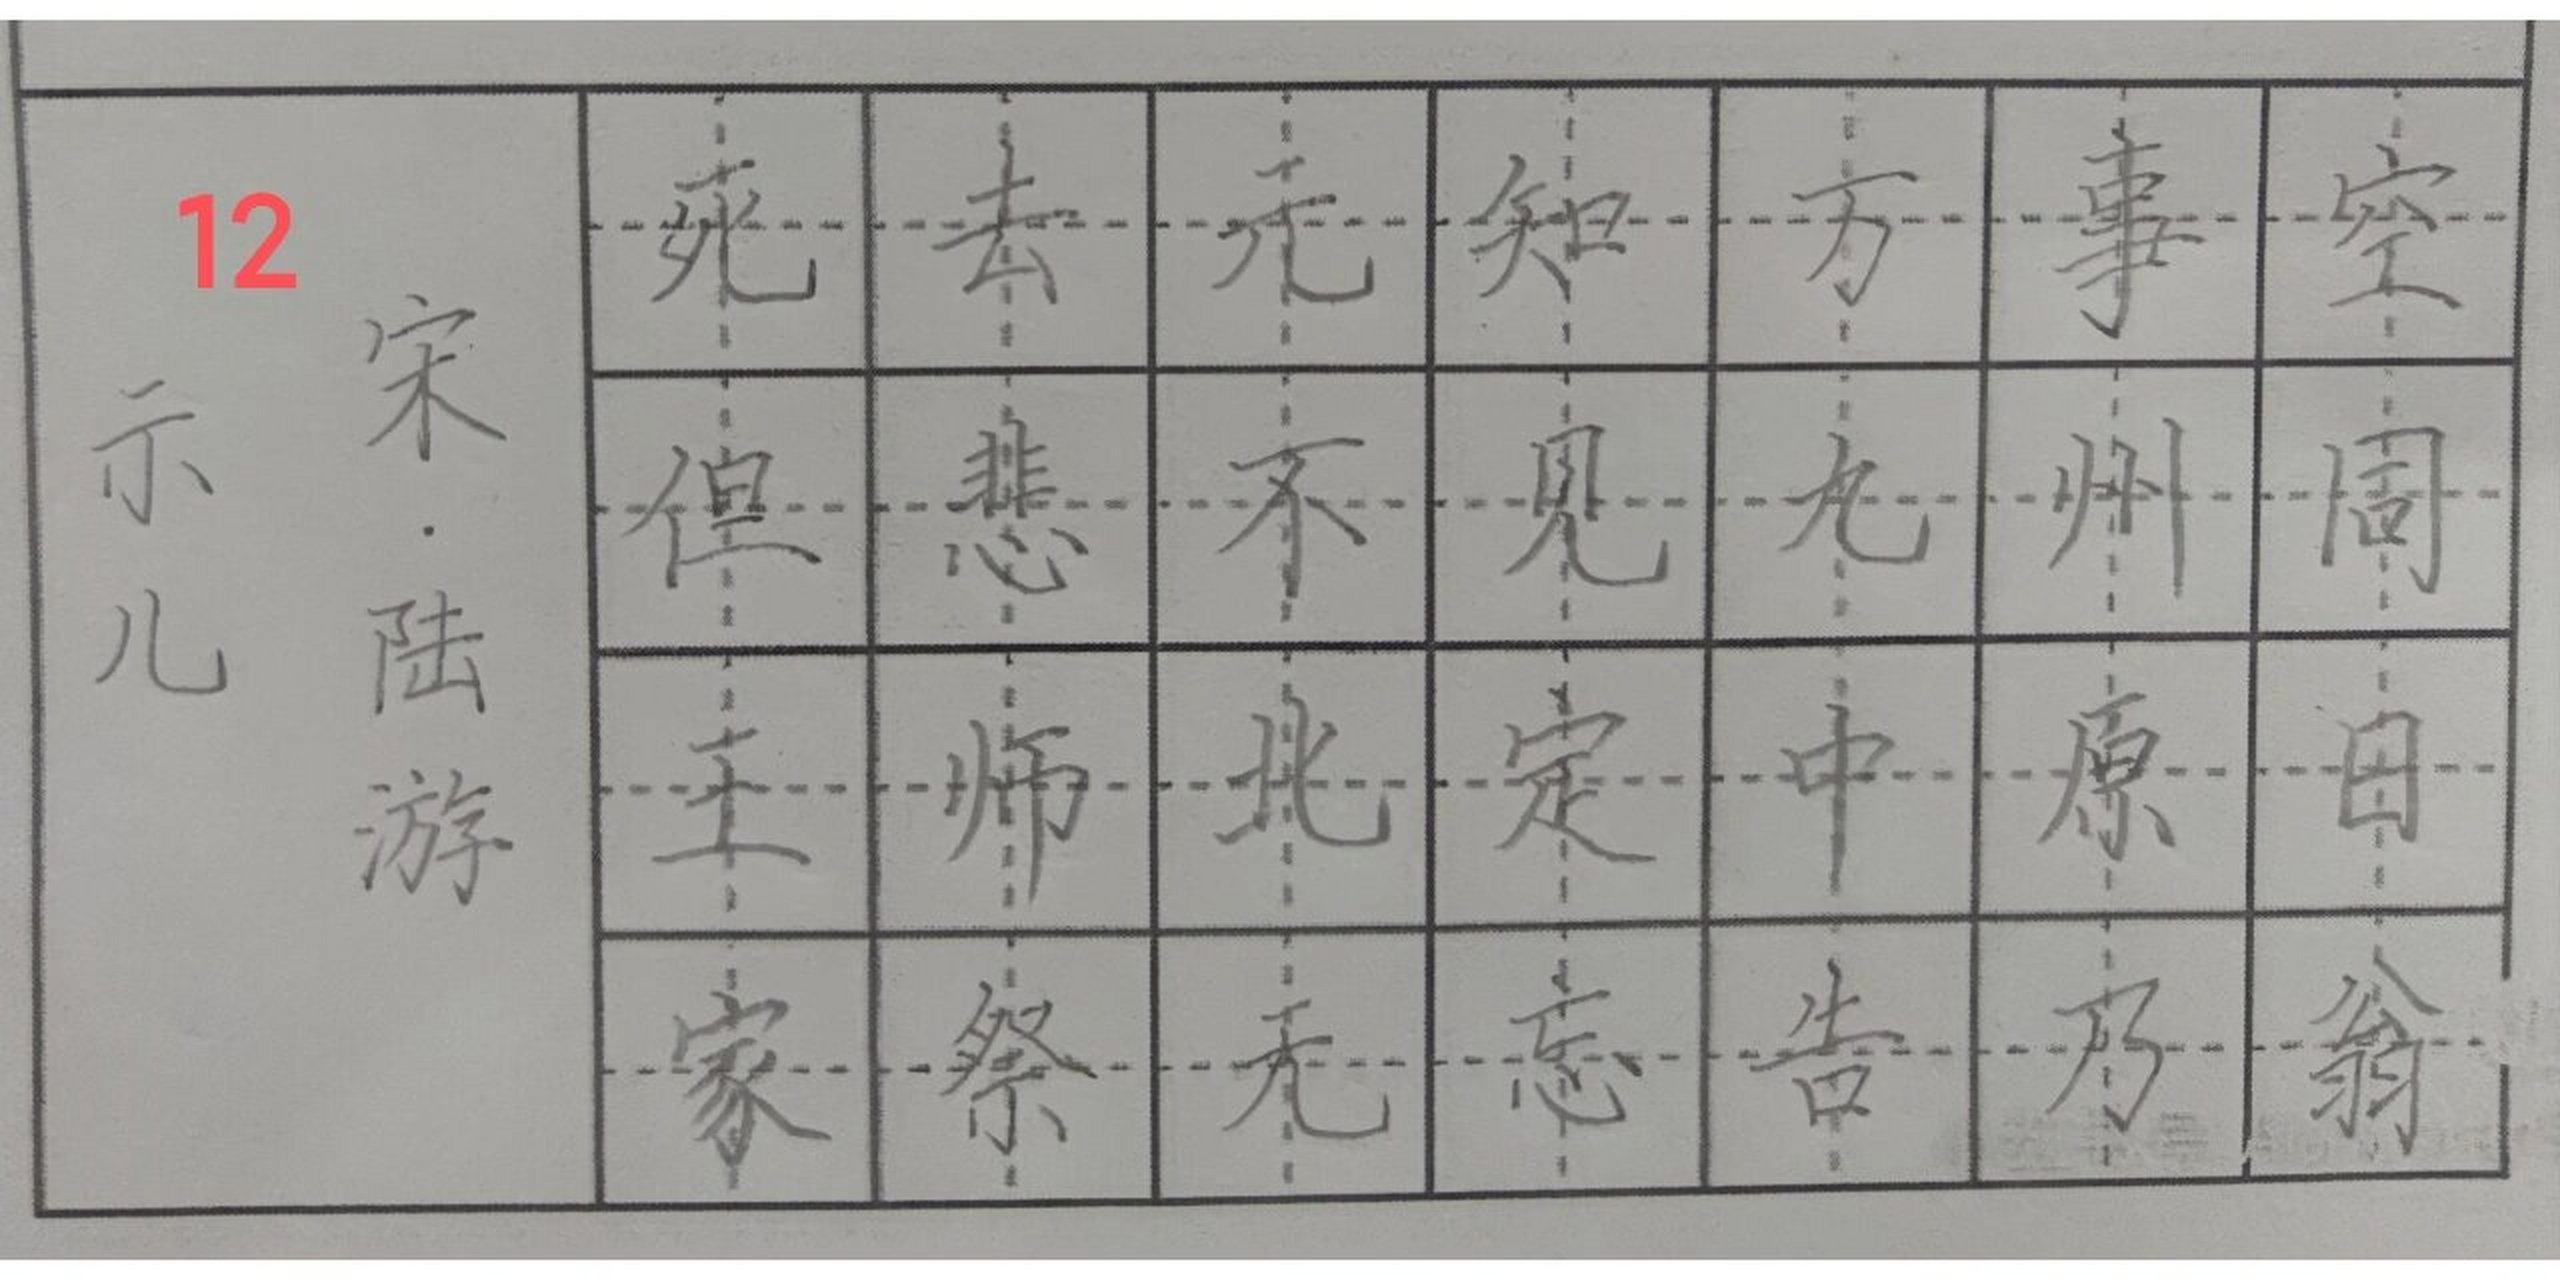 12
示儿
宋·陆游
死去元知万事空
但悲不见九州同
王师北定中原日
家祭无忘告乃翁